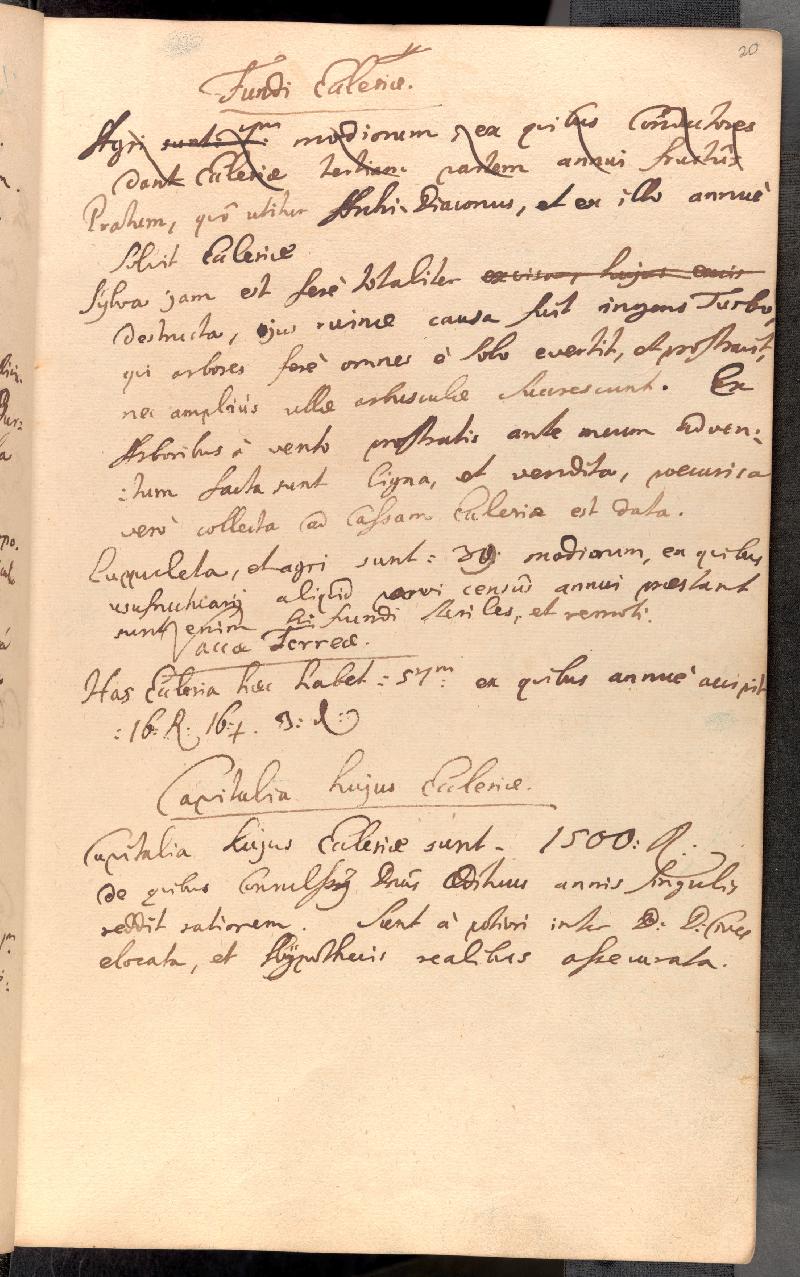 20
Fundi Ecclesiæ.
Agri sunt: modiorum, ex quibus Conductores
dant Ecclesiæ tertiam partem annui fructûs
Pratum, quô utitur Archi-Diaconus, et ex illo annuè
solvit Ecclesiæ
Sylva jam est ferè totaliter excisa, hujus
destructa, ejus ruinæ causa fuit ingens Turbo,
qui arbores ferè omnes è solo evertit, et prostravit,
nec ampliùs ullæ arbusculæ succrescunt. Ex
Arboribus à vento prostratis ante meum adven:
:tum facta sunt ligna, et vendita, pecunia
verò collecta ad Cassam Ecclesiæ est data.
Rupicleta, et agri sunt: 39: modiorum, ex quibus
usufructuarij aliquid parvi censûs annui præstant
sunt enim hi fundi steriles, et remoti.
Vaccæ Ferreæ.
Has Ecclesia hæc habet: 57m: ex quibus annuè accipit
:16: R: 16: +. 3: d:
Capitalia hujus Ecclesiæ.
Capitalia hujus Ecclesiæ sunt - 1500: R:
de quibus Consultssimg Dnus Ædituus annis singulis
reddit rationem. Sunt à potiori inter D: D: Cives
elocata, et Hÿpothecis realibus assecurata.